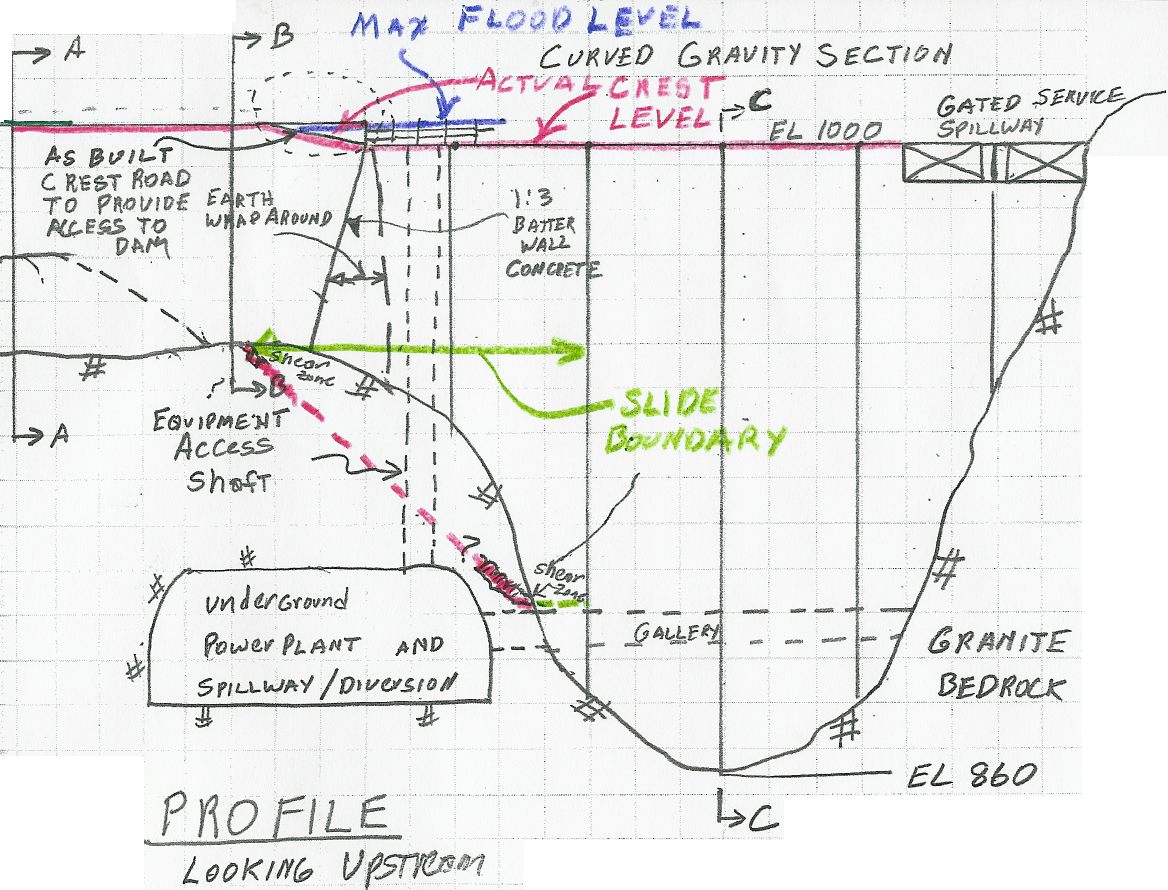 MAX FLOOD LEVEL
A
B
CURVED GRAVITY SECTION
ACTUAL CREST
LEVEL
C
EL 1000
GATED SERVICE
SPILLWAY
AS BUILT
CREST ROAD
TO PROVIDE
ACCESS TO
DAM
EARTH
WRAP AROUND
1:3
BATTER
WALL
CONCRETE
shear
zone
?
B
A
EQUIPMENT
Access
Shaft
SLIDE
BOUNDARY
?
shear
zone
underground
POWER PLANT AND
SPILLWAY / DIVERSION
GALLERY
GRANITE
BEDROCK
EL 860
C
PROFILE
LOOKING UPSTREAM